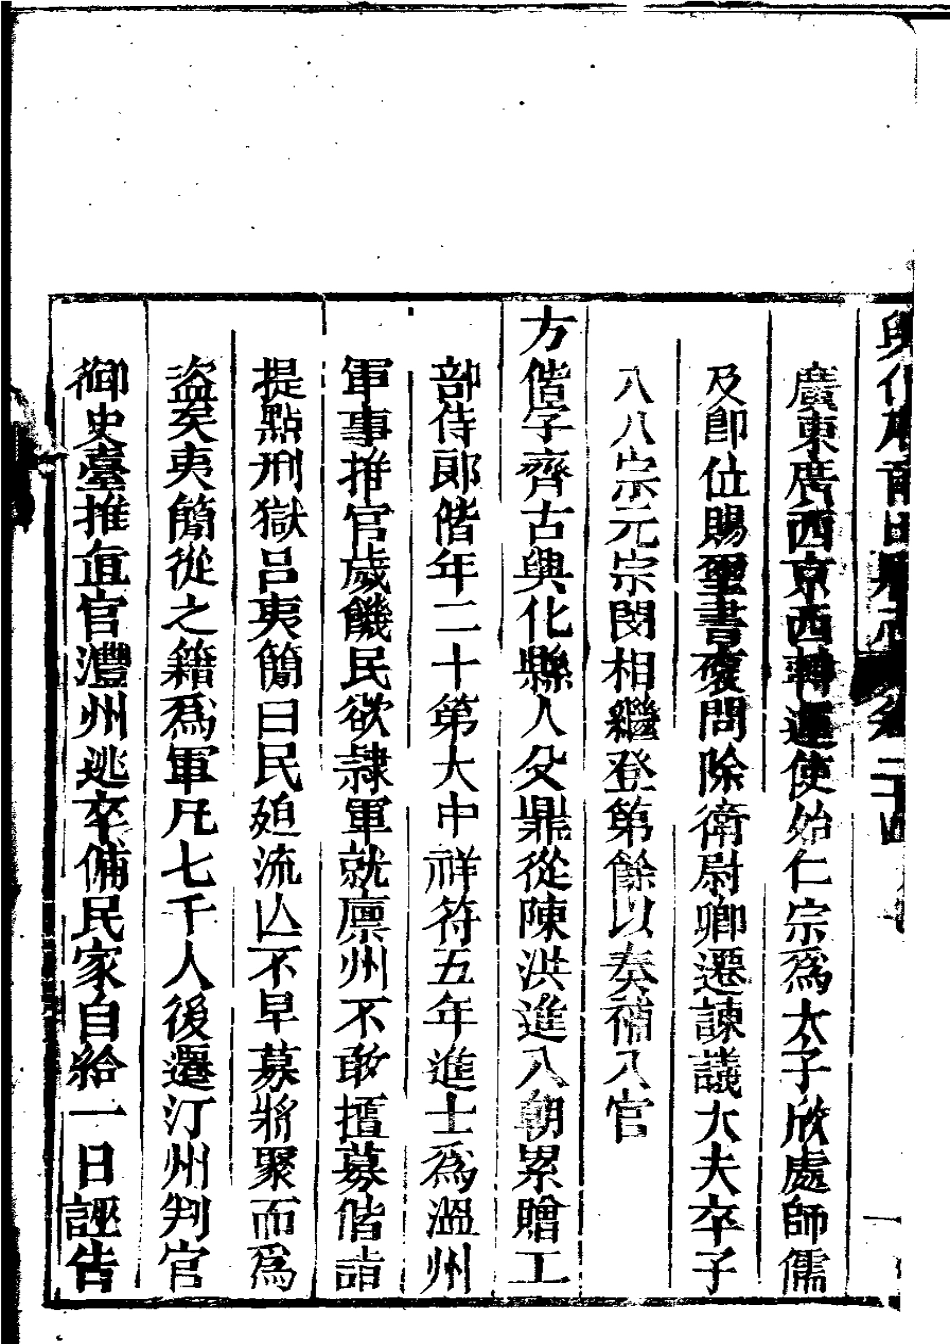 興化府莆田縣志 卷二十四
廣東廣西京西轉運使始仁宗爲太子欣處師儒
及卽位賜璽書褒問除衛尉卿遷諫議大夫卒子
八八宗元宗閔相繼登第餘以奏補入官
方偕字齊古興化縣人父鼎從陳洪進入朝累贈工
部侍郎偕年二十第大中祥符五年進士爲溫州
軍事推官歲饑民欲隸軍就廪州不敢擅募偕詣
提點刑獄呂夷簡曰民廹流亾不早募將聚而爲
盗矣夷簡從之籍爲軍凡七千人後遷汀州判官
御史臺推直官澧州逃卒傭民家自給一日誣告